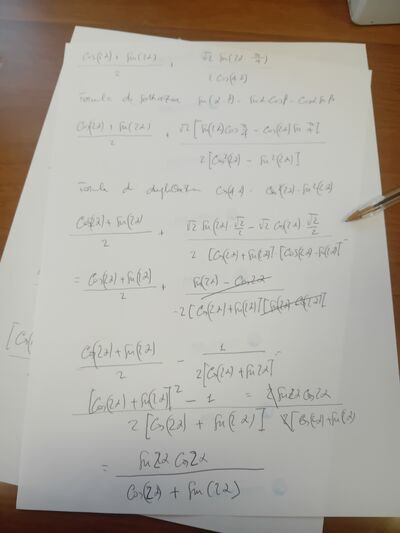 Cos(2α) + Sin(2α) / 2 + √2 Sin(2α - π/4) / 2 Cos(4α)
Formula di sottrazione Sin(α-β) = Sinα Cosβ - Cosα Sinβ
Cos(2α) + Sin(2α) / 2 + √2 [Sin(2α) Cos π/4 - Cos(2α) Sin π/4] / 2 [Cos²(2α) - Sin²(2α)]
Formula di duplicazione Cos(4α) = Cos²(2α) - Sin²(2α)
Cos(2α) + Sin(2α) / 2 + √2 Sin(2α) · √2/2 - √2 Cos(2α) · √2/2 / 2 [Cos(2α) + Sin(2α)] · [Cos(2α) - Sin(2α)]
= Cos(2α) + Sin(2α) / 2 + Sin(2α) - Cos2α / -2 [Cos(2α) + Sin(2α)] [Sin(2α) - Cos(2α)]
Cos(2α) + Sin(2α) / 2 - 1 / 2 [Cos(2α) + Sin2α]
[Cos(2α) + Sin(2α)]² - 1 / 2 [Cos(2α) + Sin(2α)] = 2 Sin2α Cos2α / 2 [Cos(2α) + Sin(2α)
= Sin2α Cos2α / Cos(2α) + Sin(2α)